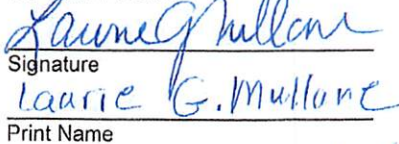 Laurie G Mullane
Signature
Laurie G. Mullane
Print Name